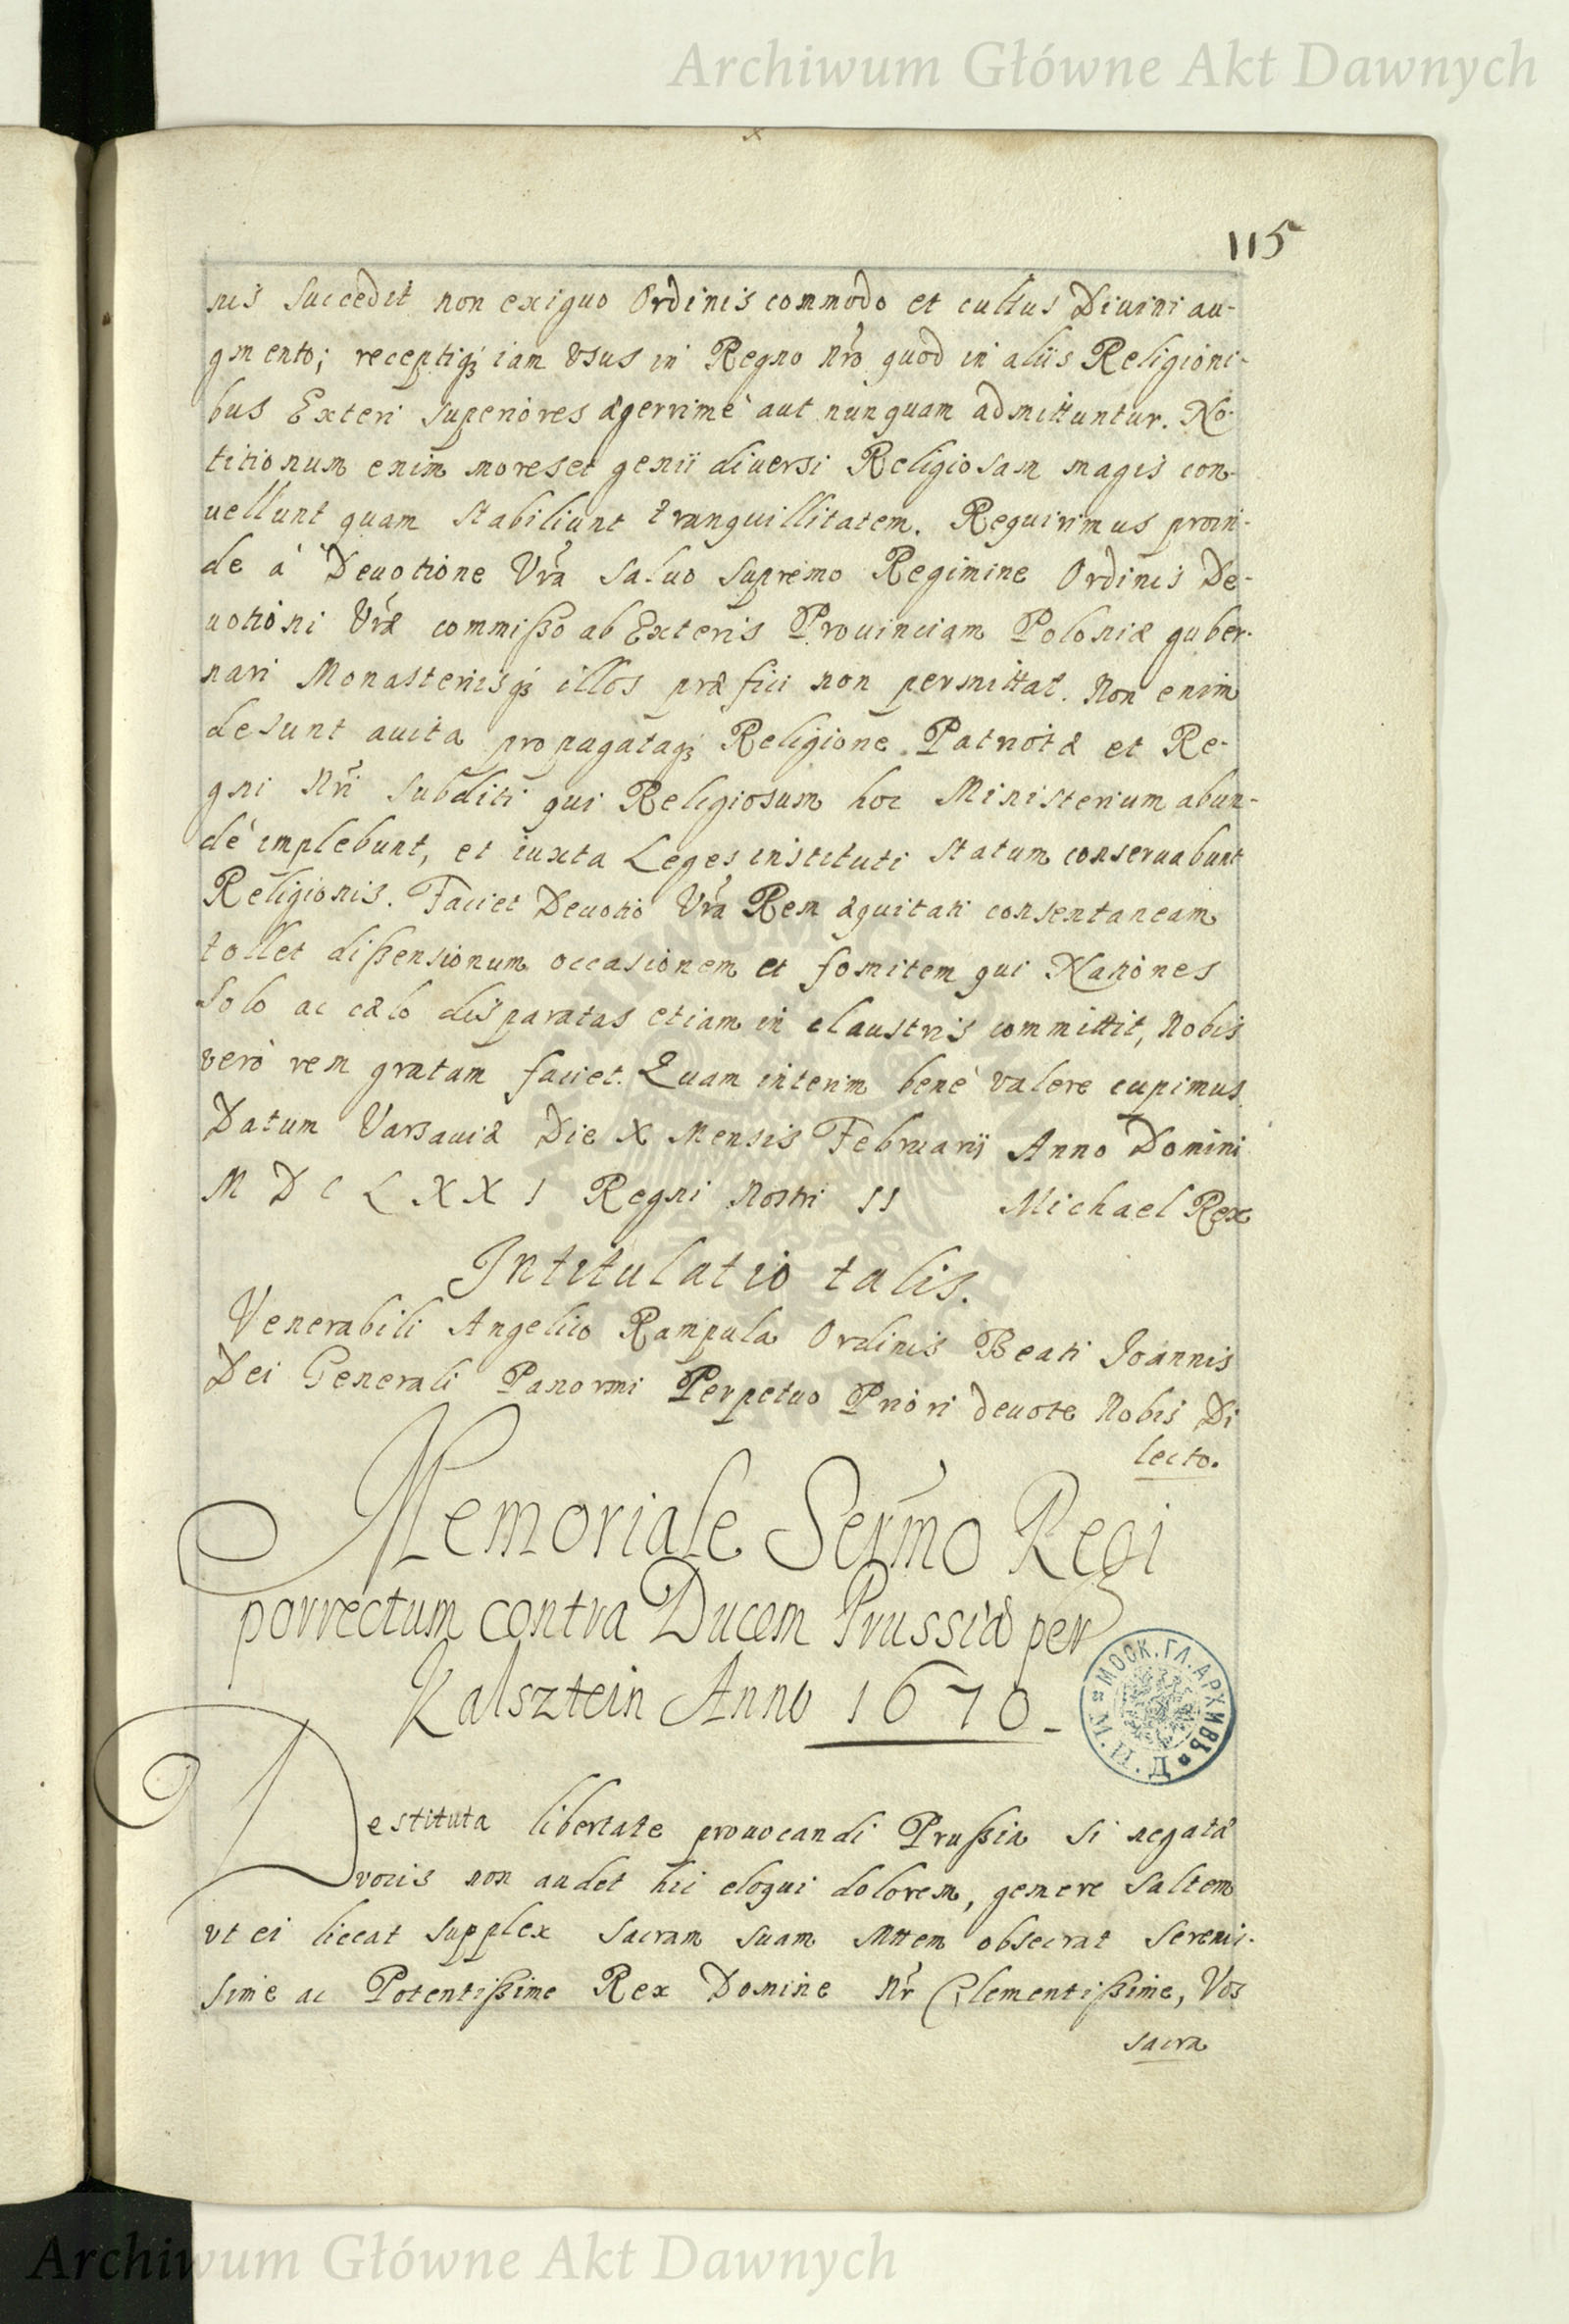 Archiwum Główne Akt Dawnych
115
nis succedit non exiguo Ordinis commodo et cultus Diuini au-
gmento; receptiq3 iam Vsus in Regno nro quod in aliis Religioni-
bus Exteri superiores ægerrimè aut nunquam admittuntur. No-
titionum enim mores et genii diuersi Religiosam magis con-
uellunt quam stabiliunt tranquillitatem. Requirimus proin-
de à Deuotione Vra saluo supremo Regimine Ordinis De-
uotioni Vræ commißo ab Exteris Prouinciam Poloniæ guber-
nari Monasteriisq3 illos præfici non permittat. Non enim
desunt auita propagataq3 Religione Patriotæ et Re-
gni nri subditi qui Religiosum hoc Ministerium abun-
dè implebunt, et iuxta Leges instituti statum conseruabunt
Religionis. Faciet Deuotio Vra Rem æquitati consentaneam
tollet dißensionum occasionem et fomitem qui Nationes
solo ac cælo disparatas etiam in claustris committit, Nobis
verò rem gratam faciet. Quam interim benè valere cupimus.
Datum Varsauiæ Die X Mensis Februarij Anno Domini
M D C L X X I Regni Nostri II Michael Rex
Intitulatio talis.
Venerabili Angelico Rampula Ordinis Beati Joannis
Dei Generali Panormi Perpetuo Priori deuote Nobis Di
lecto.
Memoriale Sermo Regi
porrectum contra Ducem Prussiæ per
Kalsztein Anno 1670
МОСК. ГЛ. АРХИВЪ
Destituta libertate prouocandi Prußia si negatæ
vocis non audet hic eloqui dolorem, gemere saltem
vt ei liceat supplex sacram suam Mttem obsecrat sereni-
sime ac Potentißime Rex Domine Nr Clementißime, Vos
sacra
Archiwum Główne Akt Dawnych